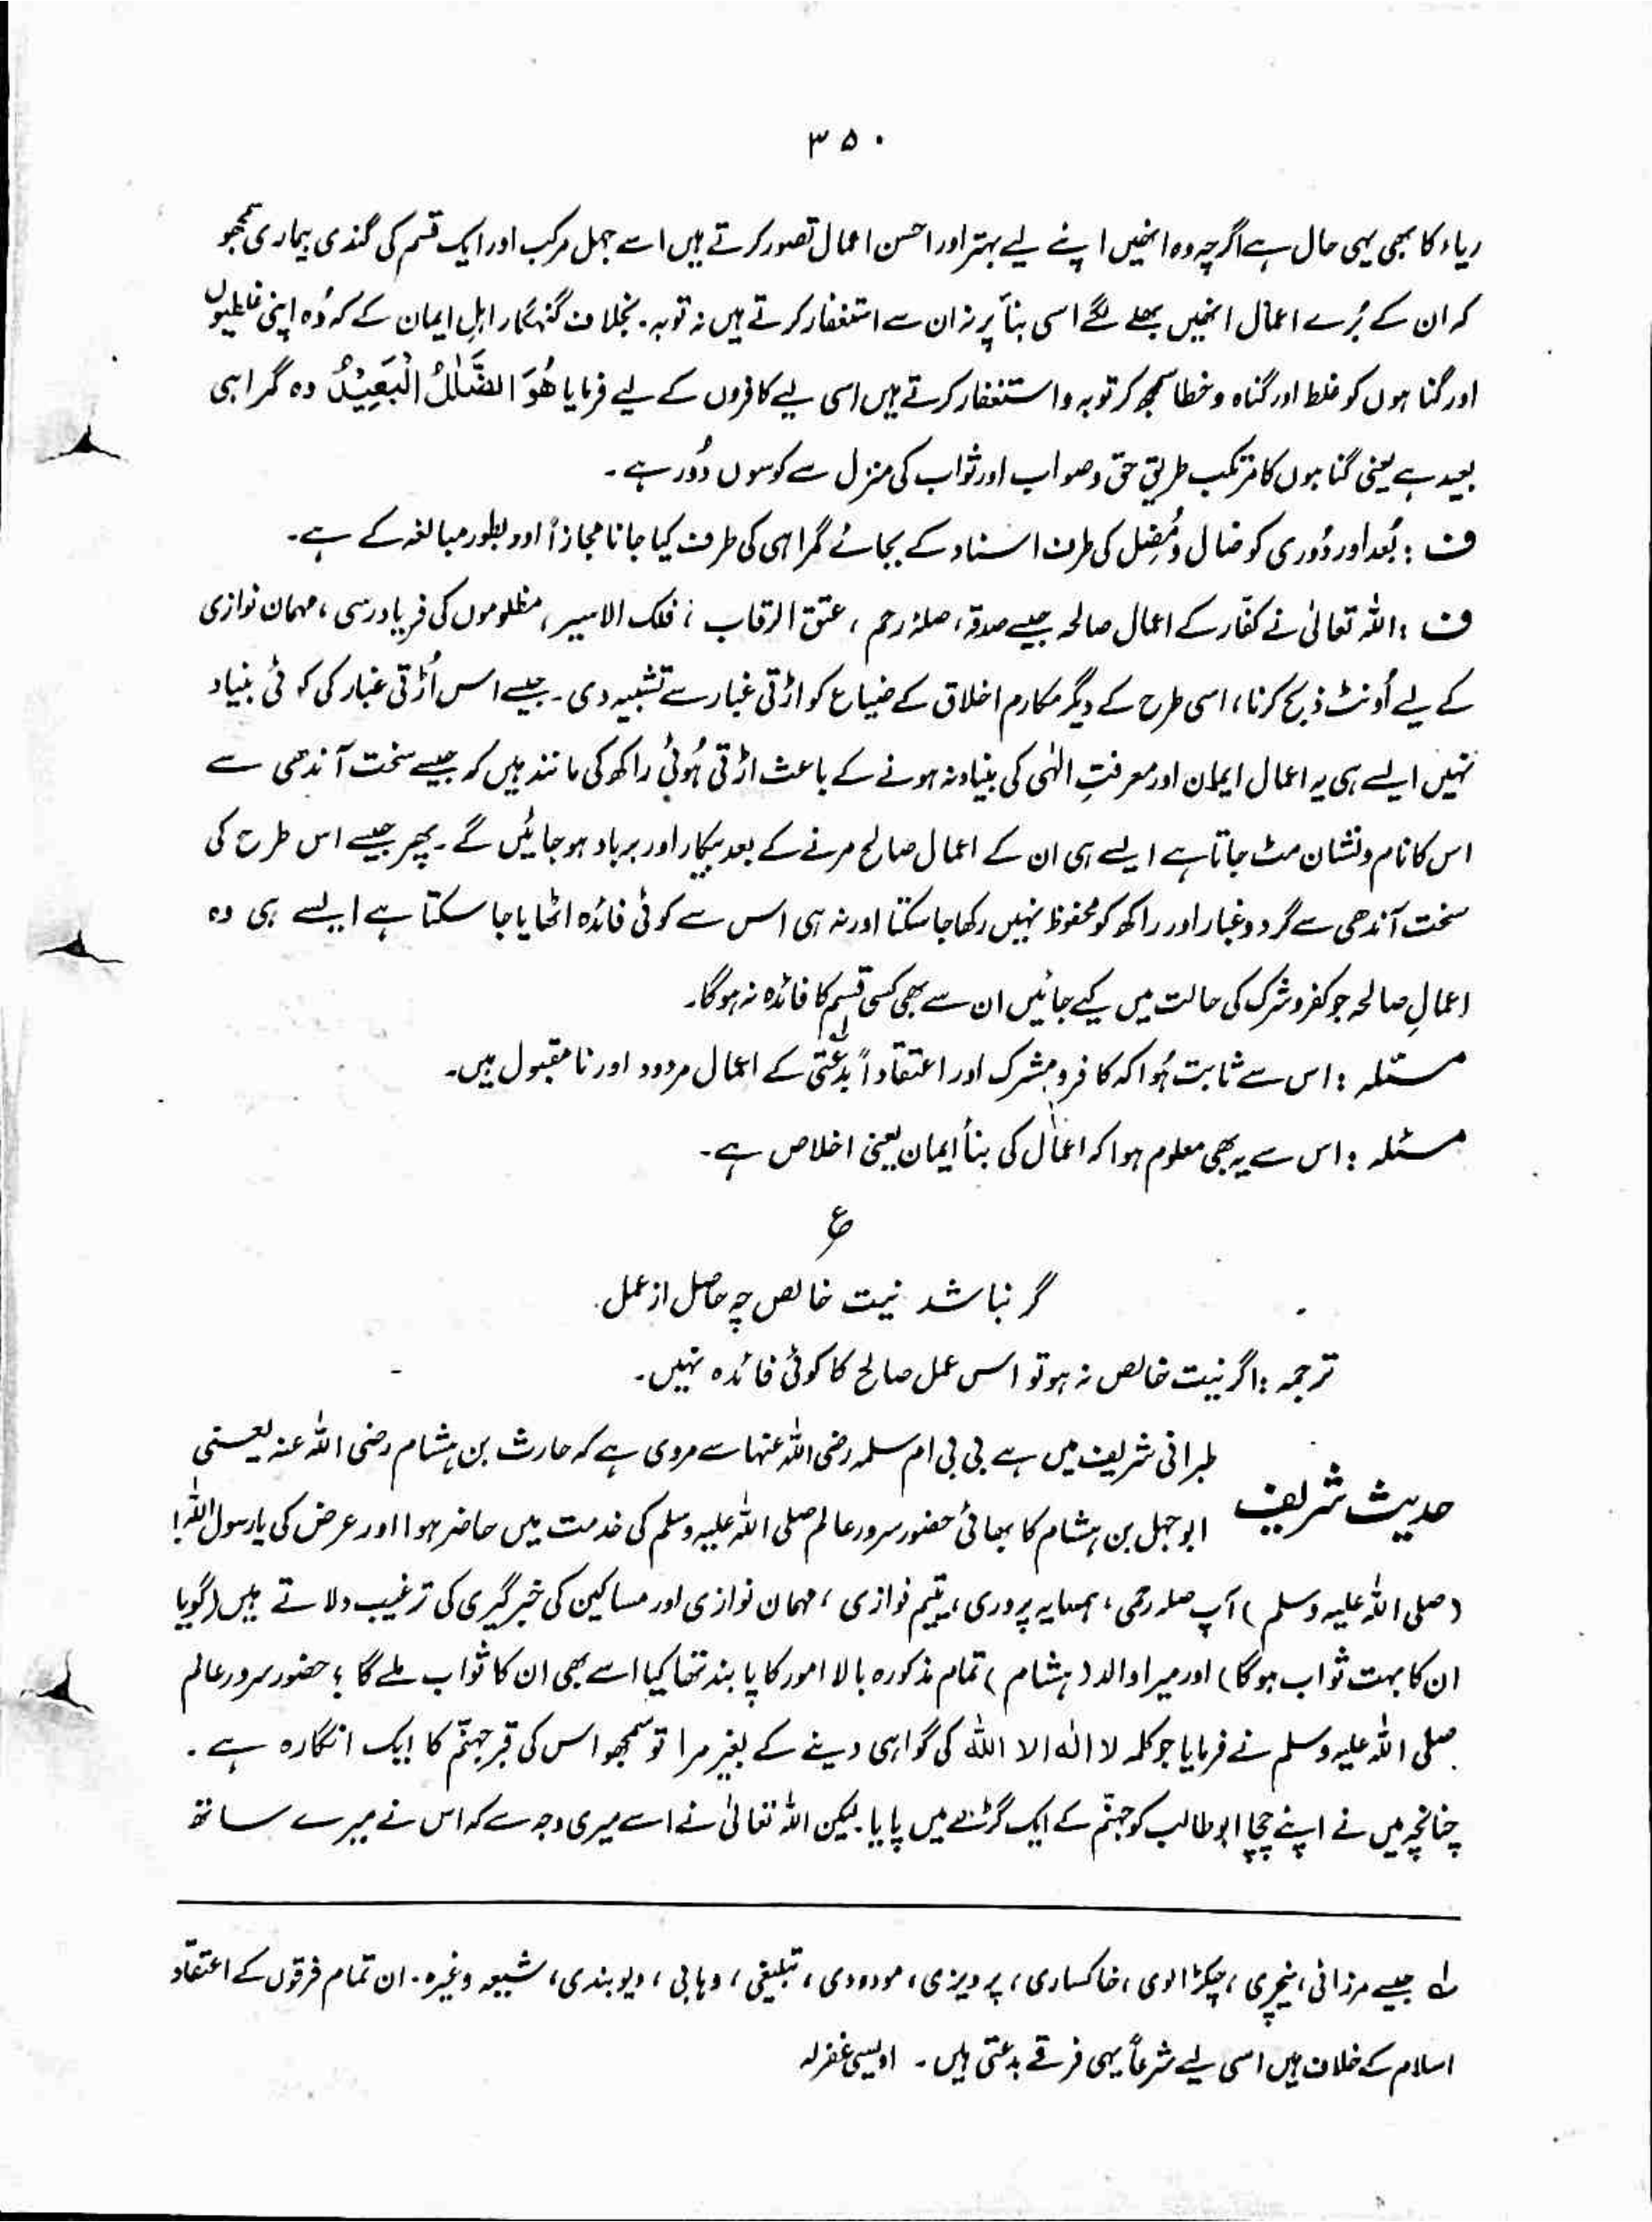 ۳۵۰
ریاء کا بھی یہی حال ہے اگرچہ وہ انھیں اپنے لیے بہتر اور احسن اعمال تصور کرتے ہیں اسے جہل مرکب اور ایک قسم کی گندی بیماری سمجھو
کہ ان کے بُرے اعمال انھیں بھلے لگے اسی بنأ پر نہ ان سے استغفار کرتے ہیں نہ توبہ۔ بخلاف گنہگار اہلِ ایمان کے کہ وُہ اپنی غلطیوں
اور گناہوں کو غلط اور گناہ و خطا سمجھ کر توبہ و استغفار کرتے ہیں اسی لیے کافروں کے لیے فرمایا هُوَ الضَّلٰلُ الْبَعِيْدُ وہ گمراہی
بعید ہے یعنی گناہوں کا مرتکب طریقِ حق و صواب اور ثواب کی منزل سے کوسوں دُور ہے۔
ف : بُعد اور دُوری کو ضال و مُضِل کی طرف اسناد کے بجائے گمراہی کی طرف کیا جانا مجازاً اور بطور مبالغہ کے ہے۔
ف : اللہ تعالیٰ نے کفّار کے اعمال صالحہ جیسے صدقہ، صلۂ رحم، عتق الرقاب، فلک الاسیر، مظلوموں کی فریاد رسی، مہمان نوازی
کے لیے اُونٹ ذبح کرنا، اسی طرح کے دیگر مکارم اخلاق کے ضیاع کو اڑتی غبار سے تشبیہ دی۔ جیسے اس اُڑتی غبار کی کوئی بنیاد
نہیں ایسے ہی یہ اعمال ایمان اور معرفتِ الٰہی کی بنیاد نہ ہونے کے باعث اڑتی ہُوئی راکھ کی مانند ہیں کہ جیسے سخت آندھی سے
اس کا نام و نشان مٹ جاتا ہے ایسے ہی ان کے اعمال صالح مرنے کے بعد بیکار اور برباد ہو جائیں گے۔ پھر جیسے اس طرح کی
سخت آندھی سے گرد و غبار اور راکھ کو محفوظ نہیں رکھا جا سکتا اور نہ ہی اس سے کوئی فائدہ اٹھایا جا سکتا ہے ایسے ہی وہ
اعمالِ صالحہ جو کفر و شرک کی حالت میں کیے جائیں ان سے بھی کسی قسم کا فائدہ نہ ہوگا۔
مسئلہ : اس سے ثابت ہُوا کہ کافر و مشرک اور اعتقاداً بدعتی لہ کے اعمال مردود اور نا مقبول ہیں۔
مسئلہ : اس سے یہ بھی معلوم ہوا کہ اعمال کی بنأ ایمان یعنی اخلاص ہے۔
ع
گر نباشد نیت خالص چہ حاصل از عمل
ترجمہ : اگر نیت خالص نہ ہو تو اس عمل صالح کا کوئی فائدہ نہیں۔
حدیث شریف طبرانی شریف میں ہے بی بی ام سلمہ رضی اللہ عنہا سے مروی ہے کہ حارث بن ہشام رضی اللہ عنہ یعنی
ابوجہل بن ہشام کا بھائی حضور سرور عالم صلی اللہ علیہ وسلم کی خدمت میں حاضر ہوا اور عرض کی یا رسول اللہ!
(صلی اللہ علیہ وسلم) آپ صلہ رحمی، ہمسایہ پروری، یتیم نوازی، مہمان نوازی اور مساکین کی خبر گیری کی ترغیب دلاتے ہیں (گویا
ان کا بہت ثواب ہوگا) اور میرا والد (ہشام) تمام مذکورہ بالا امور کا پابند تھا کیا اسے بھی ان کا ثواب ملے گا ؟ حضور سرور عالم
صلی اللہ علیہ وسلم نے فرمایا جو کلمہ لا الٰہ الا اللہ کی گواہی دینے کے بغیر مرا تو سمجھو اس کی قبر جہنّم کا ایک انگارہ ہے۔
چنانچہ میں نے اپنے چچا ابوطالب کو جہنّم کے ایک گڑھے میں پایا۔ لیکن اللہ تعالیٰ نے اسے میری وجہ سے کہ اس نے میرے ساتھ
لہ جیسے مرزائی، نیچری، چکڑالوی، خاکساری، پرویزی، مودودی، تبلیغی، وہابی، دیوبندی، شیعہ وغیرہ۔ ان تمام فرقوں کے اعتقاد
اسلام کے خلاف ہیں اسی لیے شرعاً یہی فرقے بدعتی ہیں۔ اویسی غفرلہ